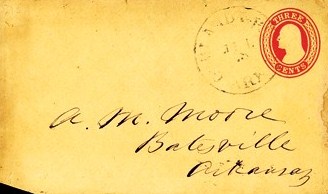 THREE
CENTS
A. M. Moore
Batesville
Arkansas